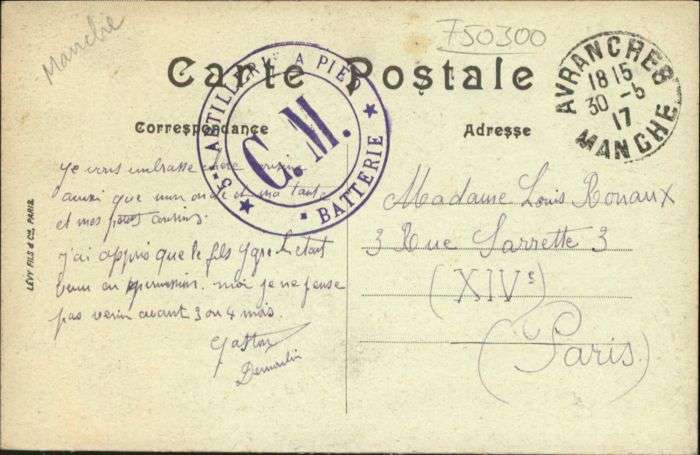 Manche
750300
Carte Postale
5me ARTILLERIE A PIED
C. M.
BATTERIE
AVRANCHES
18 15
30 - 5
17
MANCHE
Correspondance
Adresse
Je vous embrasse chère cousine
ainsi que mon oncle et ma tante
et mes cousins.
j'ai appris que le fils était
venu en permission. moi je ne pense
pas venir avant 3 ou 4 mois.
Gaston
Madame Louis Rouaux
3 Rue Sarrette 3
(XIVe)
(Paris)
LÉVY FILS & Cie, PARIS